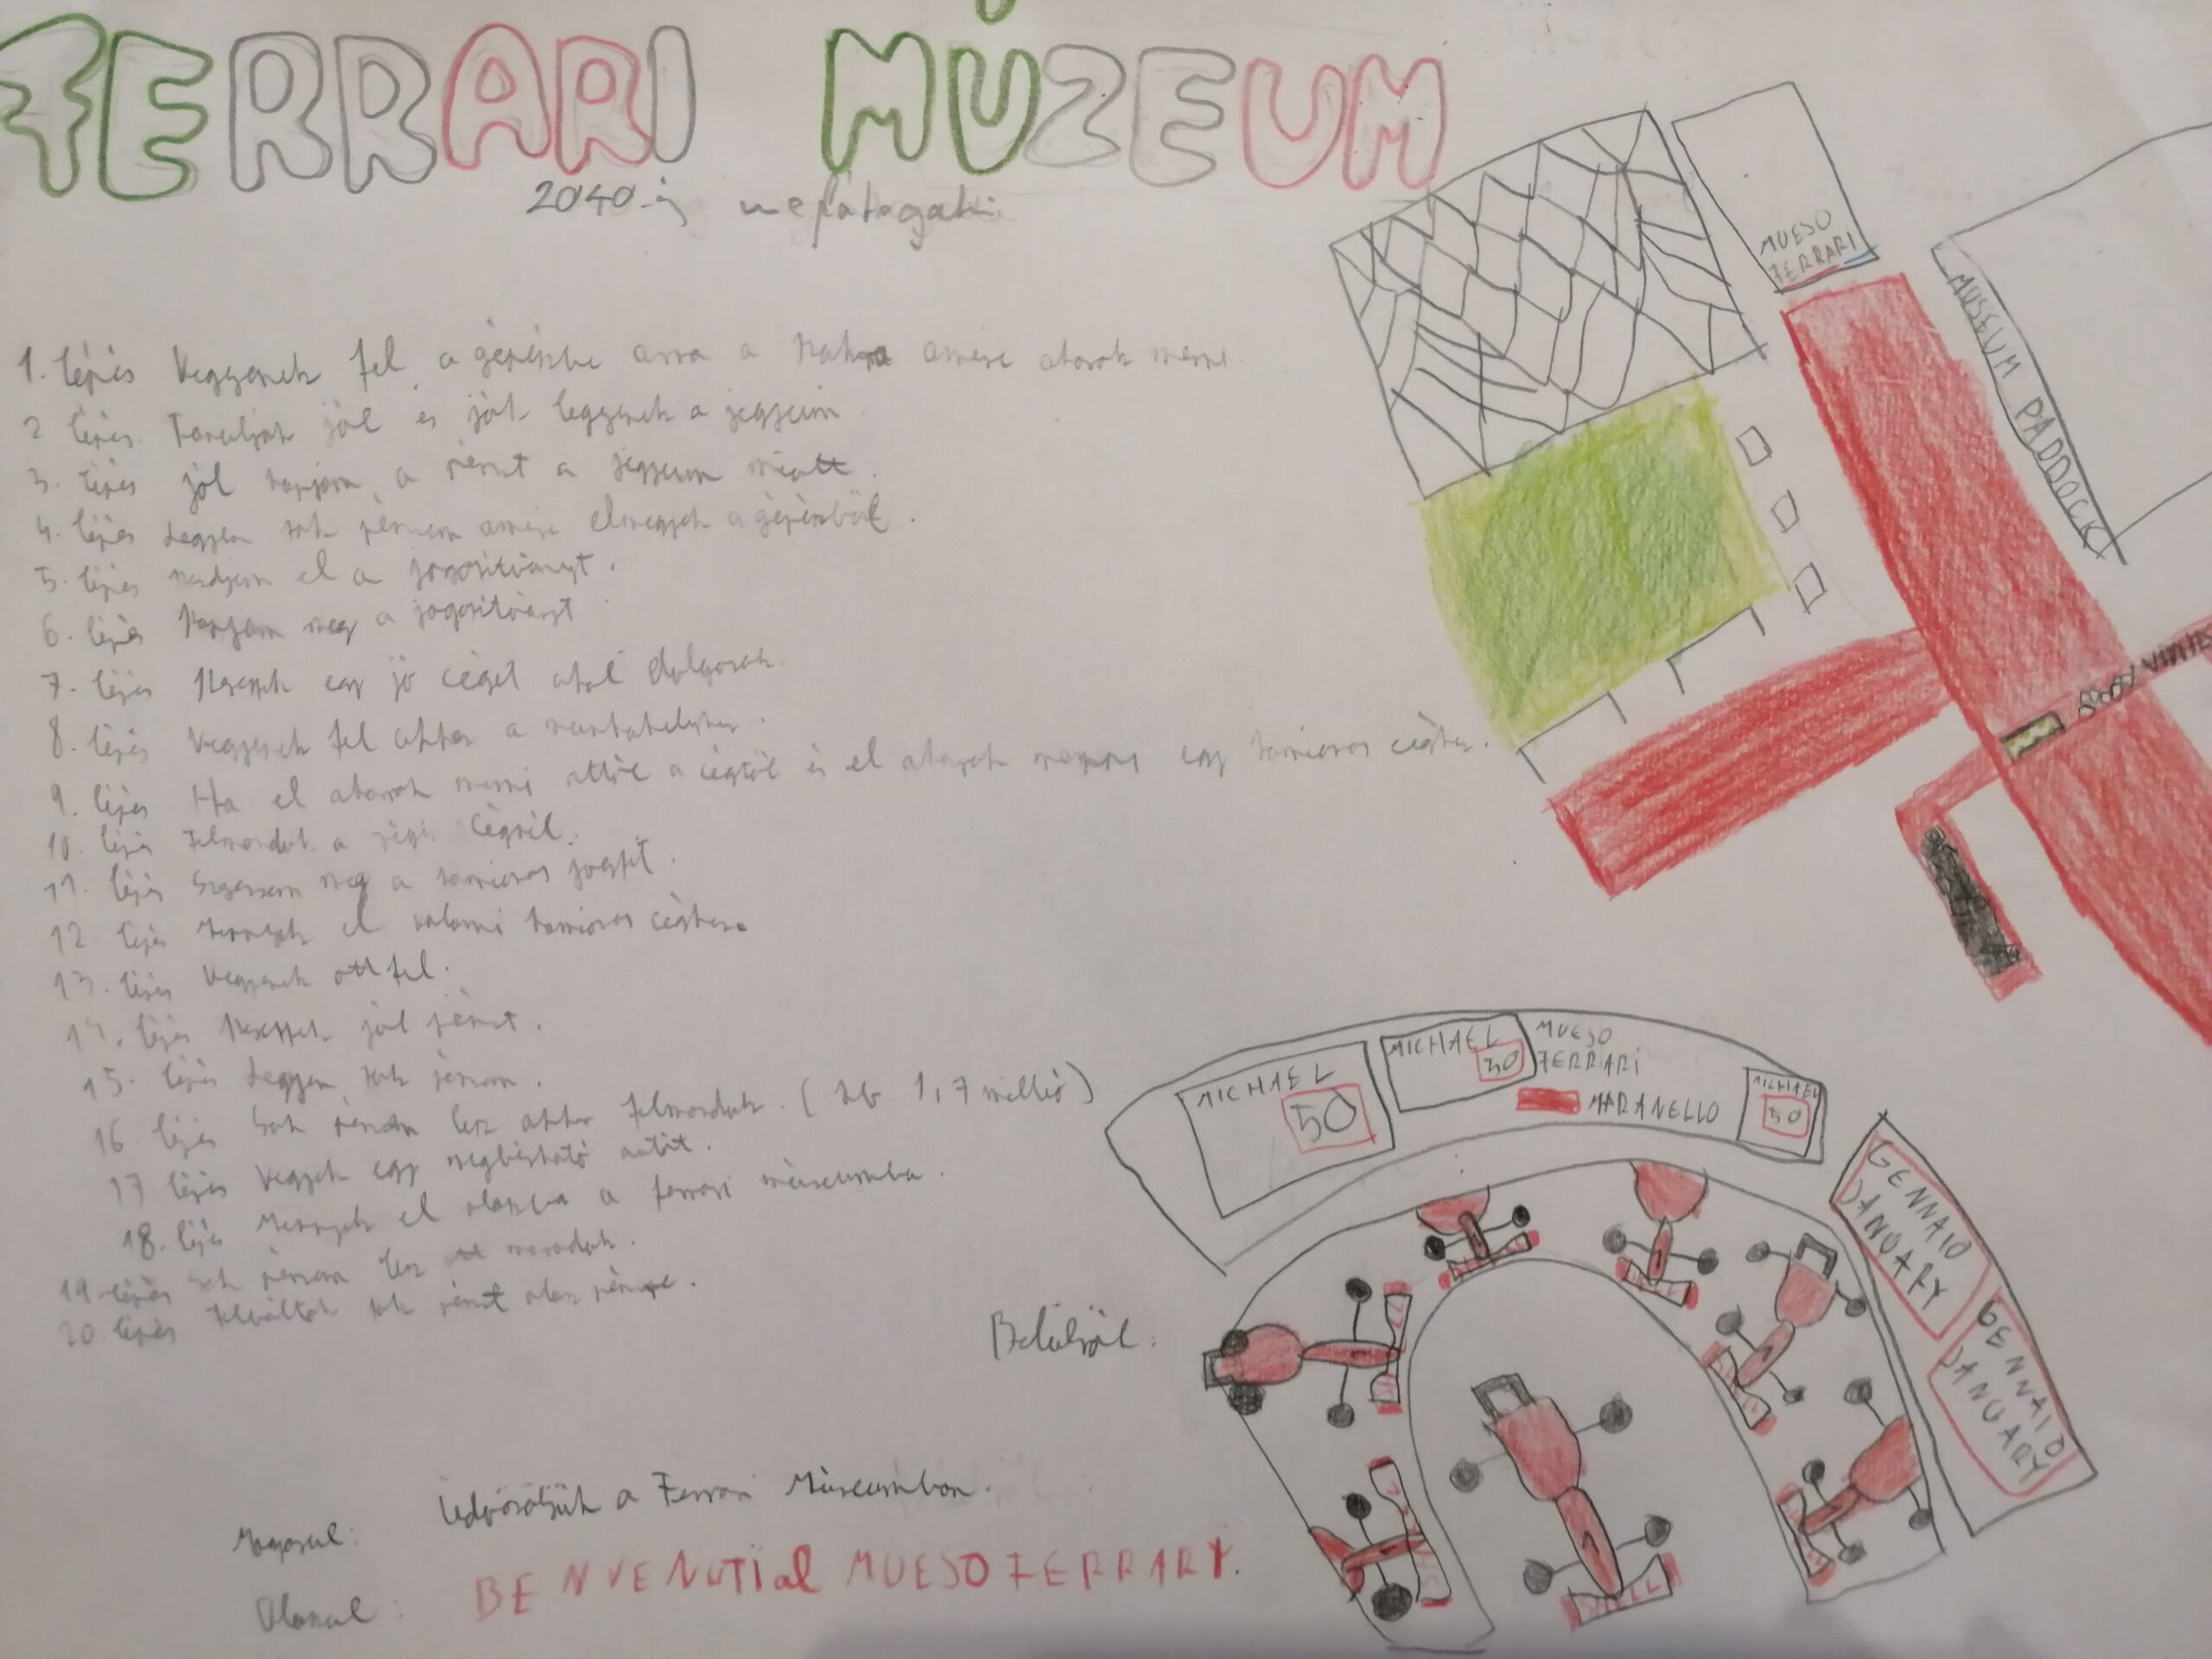 FERRARI MÚZEUM
2040-ig meglátogatni
MUESO
FERRARI
MUSEUM PADDOCK
1. lépés Vegyenek fel a gépészbe arra a szakra amire akarok menni.
2 lépés. Tanuljak jól és jók legyenek a jegyeim
3. lépés jól kapjam a pénzt a jegyeim miatt.
4. lépés Legyen sok pénzem amire elmegyek a gépészből.
5. lépés kezdjem el a jogosítványt.
6. lépés Kapjam meg a jogosítványt
7. lépés Keressek egy jó céget ahol dolgozok.
8. lépés Vegyenek fel abba a munkahelybe.
9. lépés Ha el akarok menni attól a cégtől és el akarok menni egy kamionos céghez.
10. lépés Felmondok a régi cégnél.
11. lépés Szerezzem meg a kamionos jogsit.
12. lépés Mennyek el valami kamionos céghez.
13. lépés Vegyenek ott fel.
14. lépés Keressek jól pénzt.
15. lépés Legyen sok pénzem.
16. lépés Sok pénzem lesz akkor felmondok. (kb. 1,7 millió)
17. lépés Vegyek egy megbízható autót.
18. lépés Mennyek el olaszba a ferrari múzeumba.
19. lépés Sok pénzem lesz maradok.
20. lépés Felváltok sok pénzt olasz pénzre.
MICHAEL
50
MICHAEL
50
MUESO
FERRARI
MARANELLO
MICHAEL
50
GENNAIO
JANUARY
GENNAIO
JANUARY
Belülről.
SHELL
Magyarul: Üdvözöljük a Ferrari Múzeumban.
Olaszul: BENVENUTI al MUESO FERRARY.